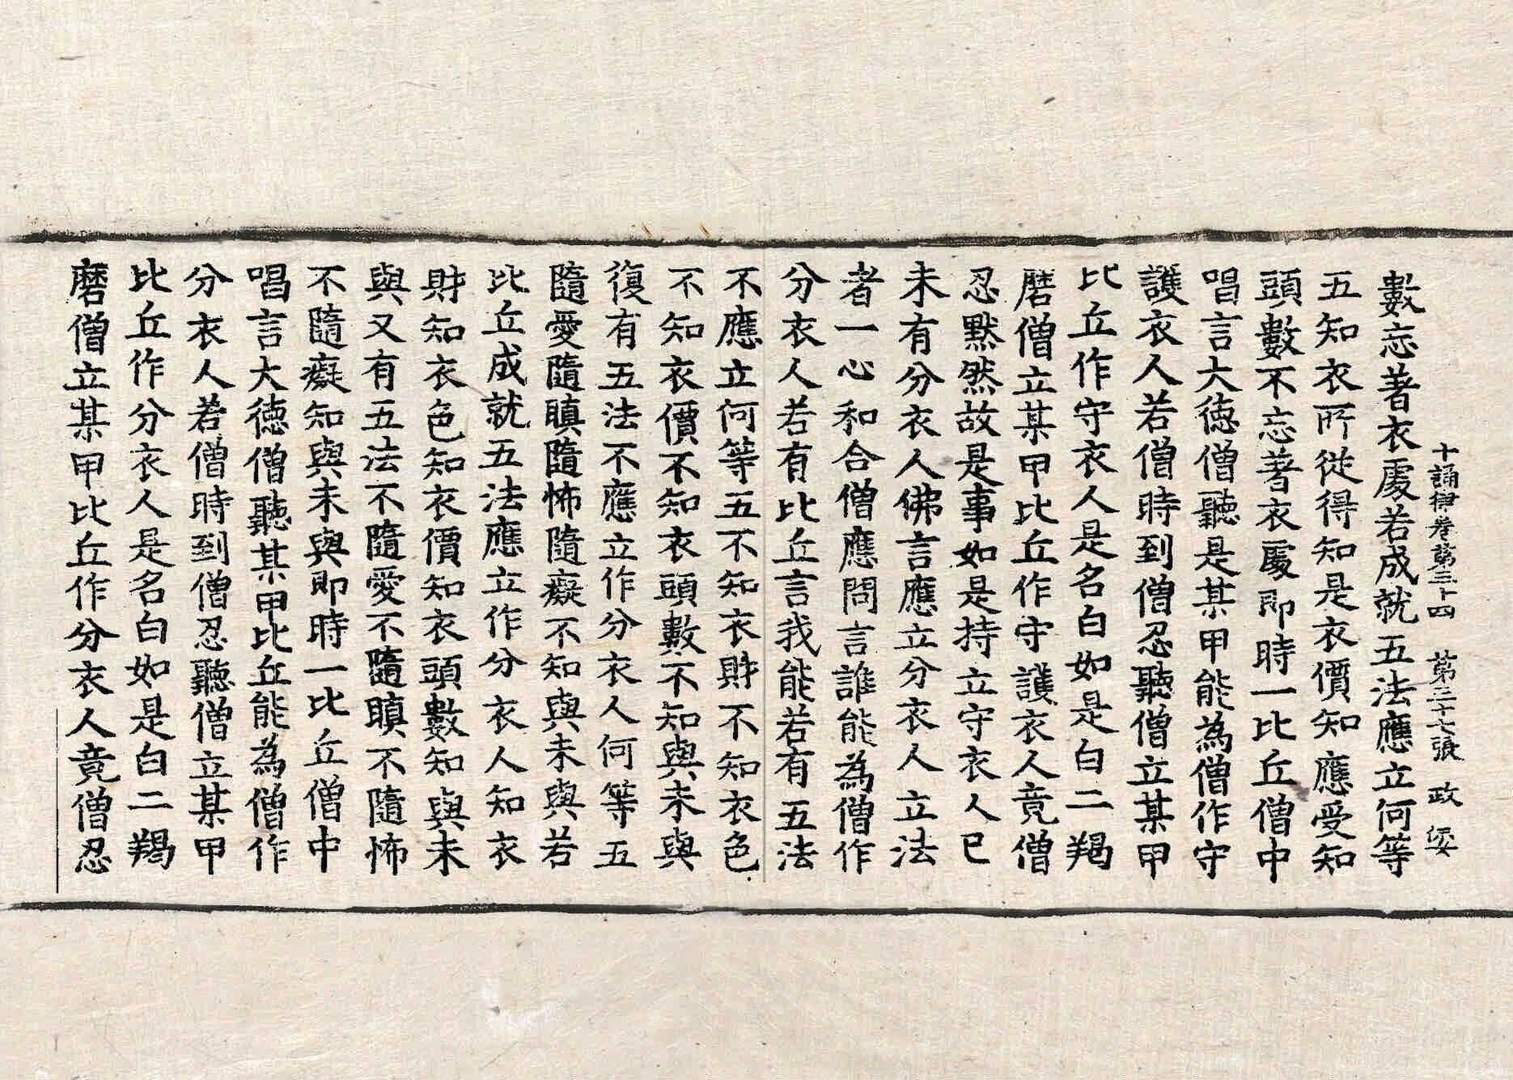 十誦律卷第三十四 第三十七張 政
數忘著衣處若成就五法應立何等
五知衣所從得知是衣價知應受知
頭數不忘著衣處即時一比丘僧中
唱言大德僧聽是某甲能為僧作守
護衣人若僧時到僧忍聽僧立某甲
比丘作守衣人是名白如是白二羯
磨僧立某甲比丘作守護衣人竟僧
忍黙然故是事如是持立守衣人已
未有分衣人佛言應立分衣人立法
者一心和合僧應問言誰能為僧作
分衣人若有比丘言我能若有五法
不應立何等五不知衣財不知衣色
不知衣價不知衣頭數不知與未與
復有五法不應立作分衣人何等五
隨愛隨瞋隨怖隨癡不知與未與若
比丘成就五法應立作分衣人知衣
財知衣色知衣價知衣頭數知與未
與又有五法不隨愛不隨瞋不隨怖
不隨癡知與未與即時一比丘僧中
唱言大德僧聽某甲比丘能為僧作
分衣人若僧時到僧忍聽僧立某甲
比丘作分衣人是名白如是白二羯
磨僧立某甲比丘作分衣人竟僧忍